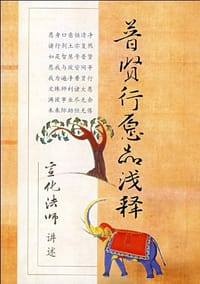 普贤行愿品浅释
愿身口意恒清净
诸行刹土亦复然
如是智慧号普贤
愿我与彼皆同等
我为遍净普贤行
文殊师利诸大愿
满彼事业尽无余
未来际劫恒无倦
宣化法师
讲述